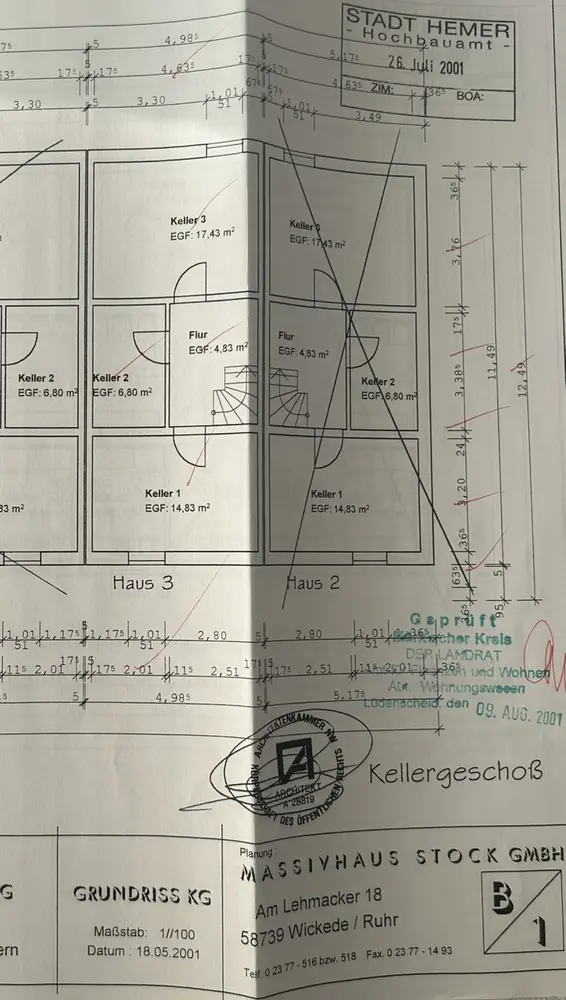 STADT HEMER
- Hochbauamt -
26. Juli 2001
ZIM:
BOA:
4,98⁵
5,17⁵
17⁵
4,63⁵
4,63⁵
36⁵
3,30
5
3,30
1,01
51
1,01
51
3,49
Keller 3
EGF: 17,43 m²
Keller 3
EGF: 17,43 m²
36⁵
3,76
17⁵
Flur
EGF: 4,83 m²
Flur
EGF: 4,83 m²
3,38⁵
11,49
12,49
Keller 2
EGF: 6,80 m²
Keller 2
EGF: 6,80 m²
Keller 2
EGF: 6,80 m²
24
Keller 1
EGF: 14,83 m²
Keller 1
EGF: 14,83 m²
83 m²
3,20
36⁵
63⁵
5
95
Haus 3
Haus 2
1,01
51
1,17⁵
5
1,17⁵
1,01
51
2,80
5
2,80
1,01
51
36⁵
11⁵
2,01
17⁵
5
17⁵
2,01
11⁵
2,51
17⁵
5
17⁵
2,51
11⁵
2,01
36⁵
5
4,98⁵
5
5,17⁵
Geprüft
Märkischer Kreis
DER LANDRAT
und Wohnen
Abt. Wohnungswesen
Lüdenscheid, den 09. AUG. 2001
ARCHITEKTENKAMMER NW
KÖRPERSCHAFT DES ÖFFENTLICHEN RECHTS
ARCHITEKT
A 28819
Kellergeschoß
G
GRUNDRISS KG
Maßstab: 1//100
Datum : 18.05.2001
ern
Planung :
MASSIVHAUS STOCK GMBH
Am Lehmacker 18
58739 Wickede / Ruhr
Telf. 0 23 77 - 516 bzw. 518 Fax. 0 23 77 - 14 93
B
1